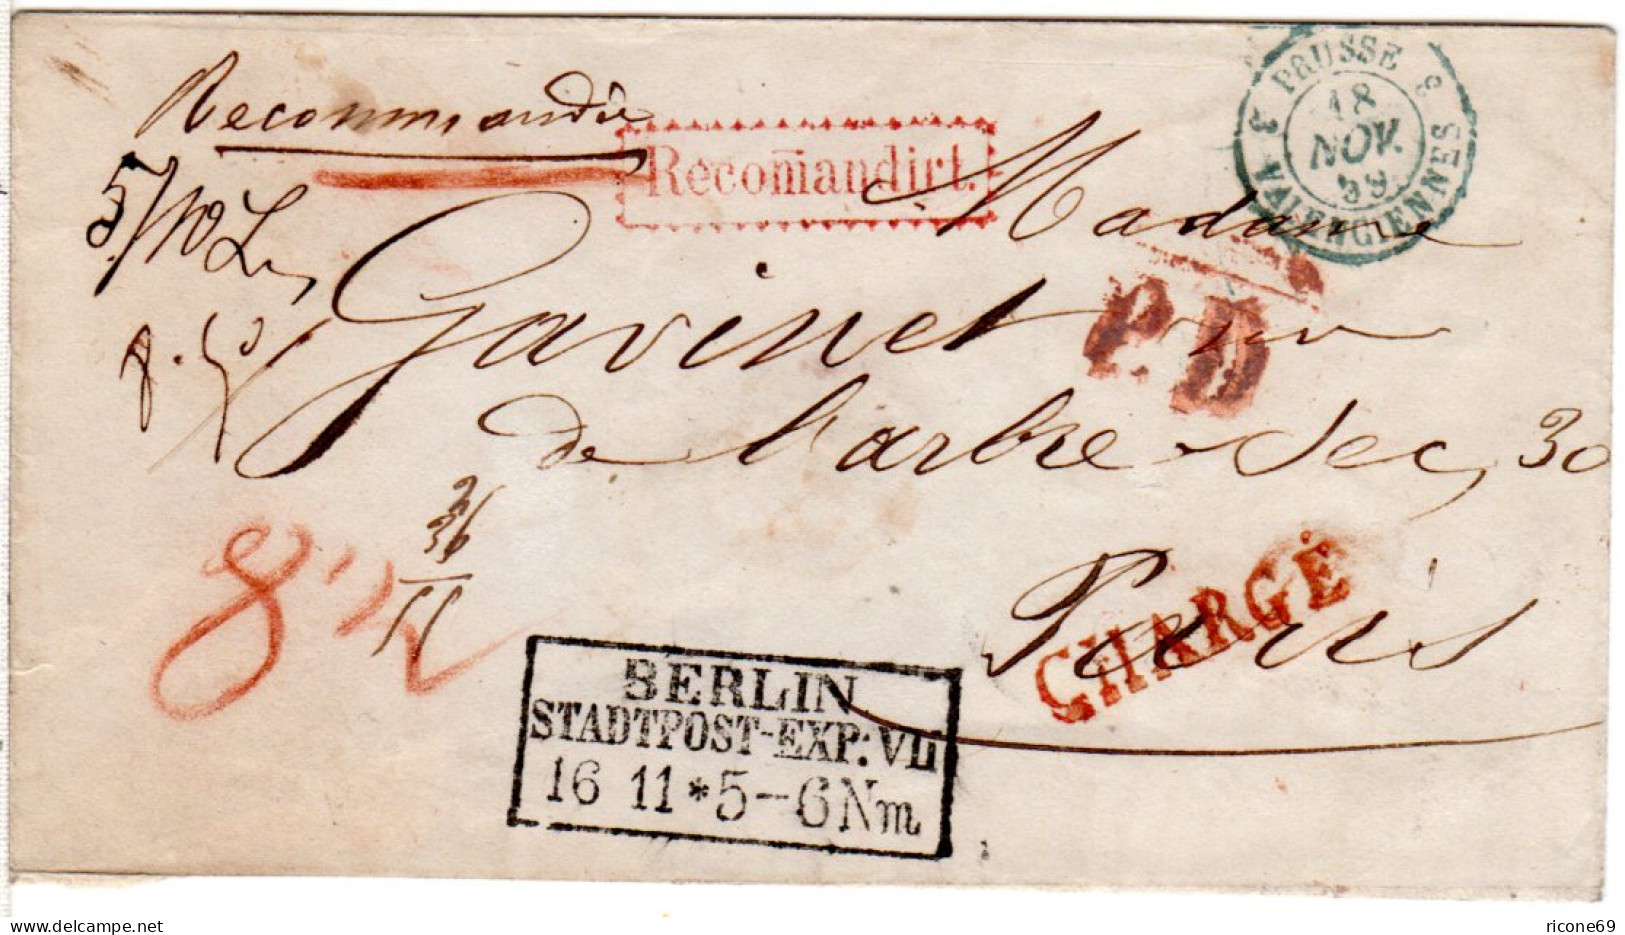 Recommandée
Recom̄andirt.
3 PRUSSE 3
18
NOV.
59
VALENCIENNES
Madame
Gavinet rue
P.D.
de l'arbre Sec, 30
Paris
CHARGÉ
26
36
8 1/2
BERLIN
STADTPOST-EXP: VII
16 11 * 5-6 Nm
delcampe.net
ricone69